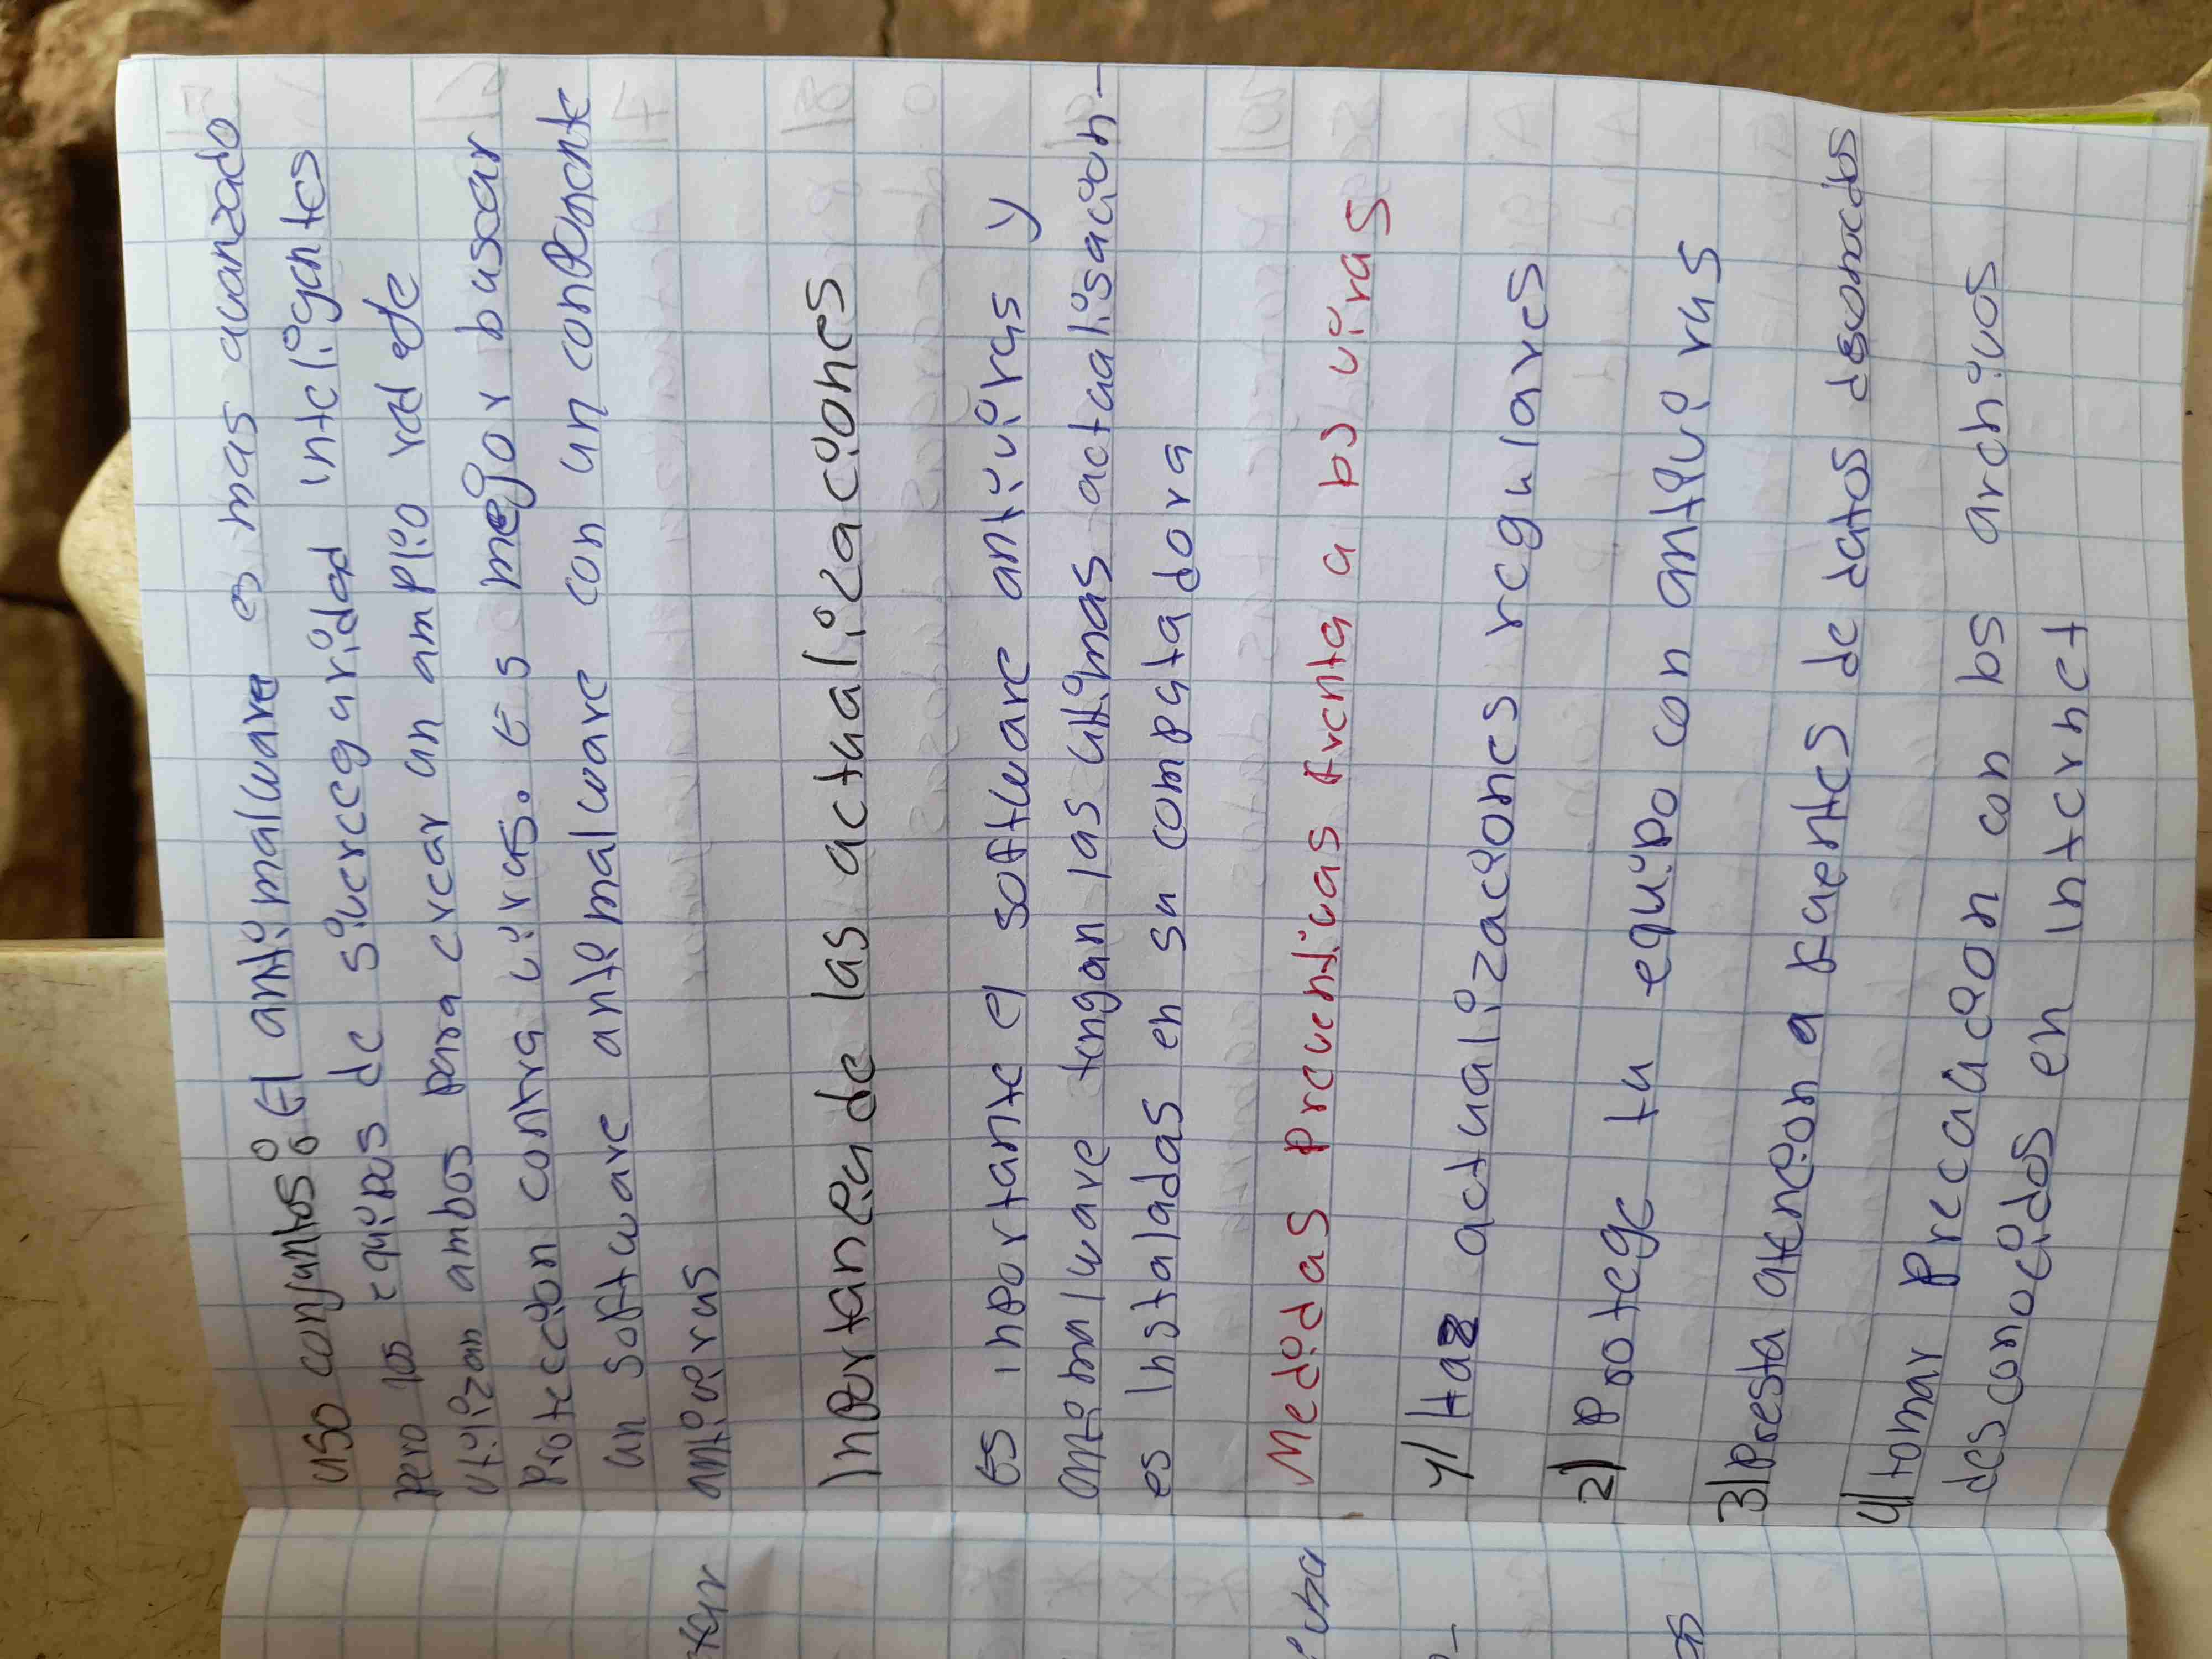 uso conjuntos: El antimalware es mas avanzado
pero los equipos de siucreegaridad inteligentes
utilizan ambos para crear un amplio rad de
Proteccion contra virus. Es mejor buscar
un software antimalware con un conponente
antivirus
Inportancia de las actualizaciones
Es inportante el software antivirus y
antimalware tengan las ultimas actualisacion-
es instaladas en su computadora
Medidas Preventivas frenta a los virus
1) Haz actualizaciones regulares
2) Protege tu equipo con antivirus
3) Presta atencion a fuentes de datos desonocdos
4) tomar Precaucion con los archivos
desconocidos en internet